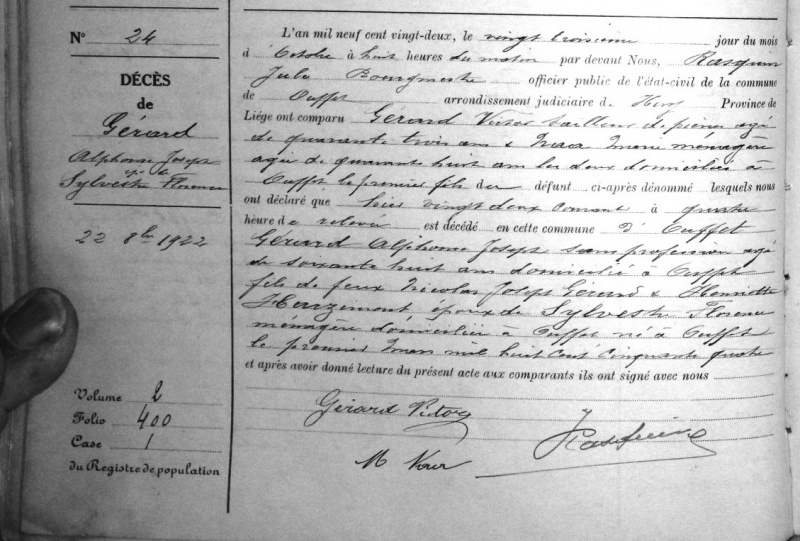 N° 24
DÉCÈS
de
Gérard
Alphonse Joseph
ép. de
Sylvestre Florence
22 8bre 1922
Volume 2
Folio 400
Case 1
du Registre de population
L'an mil neuf cent vingt-deux, le vingt troisième jour du mois
d'Octobre à huit heures du matin par devant Nous, Rasquin
Jules Bourgmestre officier public de l'état-civil de la commune
de Ouffet arrondissement judiciaire de Huy Province de
Liège ont comparu Gérard Victor tailleur de pierres agé
de quarante trois ans & ménagère
agée de quarante huit ans les deux domiciliés à
Ouffet le premier fils du défunt ci-après dénommé lesquels nous
ont déclaré que hier vingt deux courant à quatre
heure de relevée est décédé en cette commune d'Ouffet
Gérard Alphonse Joseph sans profession agé
de soixante huit ans domicilié à Ouffet
fils de feux Nicolas Joseph Gérard & Henriette
époux de Sylvestre Florence
ménagère domiciliée à Ouffet né à Ouffet
le premier mars mil huit cent cinquante quatre
et après avoir donné lecture du présent acte aux comparants ils ont signé avec nous
Gérard Victor
Rasquin
M